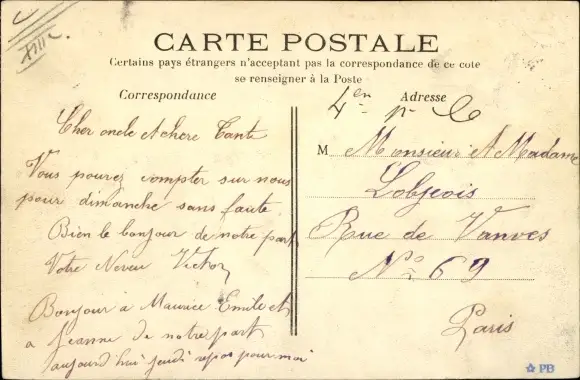 CARTE POSTALE
Certains pays étrangers n'acceptant pas la correspondance de ce cote
se renseigner à la Poste
Correspondance
Cher oncle et chere Tante
Vous pouvez compter sur nous
pour dimanche sans faute
Bien le bonjour de notre part
Votre Neveu Victor
Bonjour a Maurice Emile et
a Jeanne de notre part
aujourd'hui jeudi repos pour moi
Adresse
M Monsieur et Madame
Lobjeois
Rue de Vanves
No 69
Paris
PB